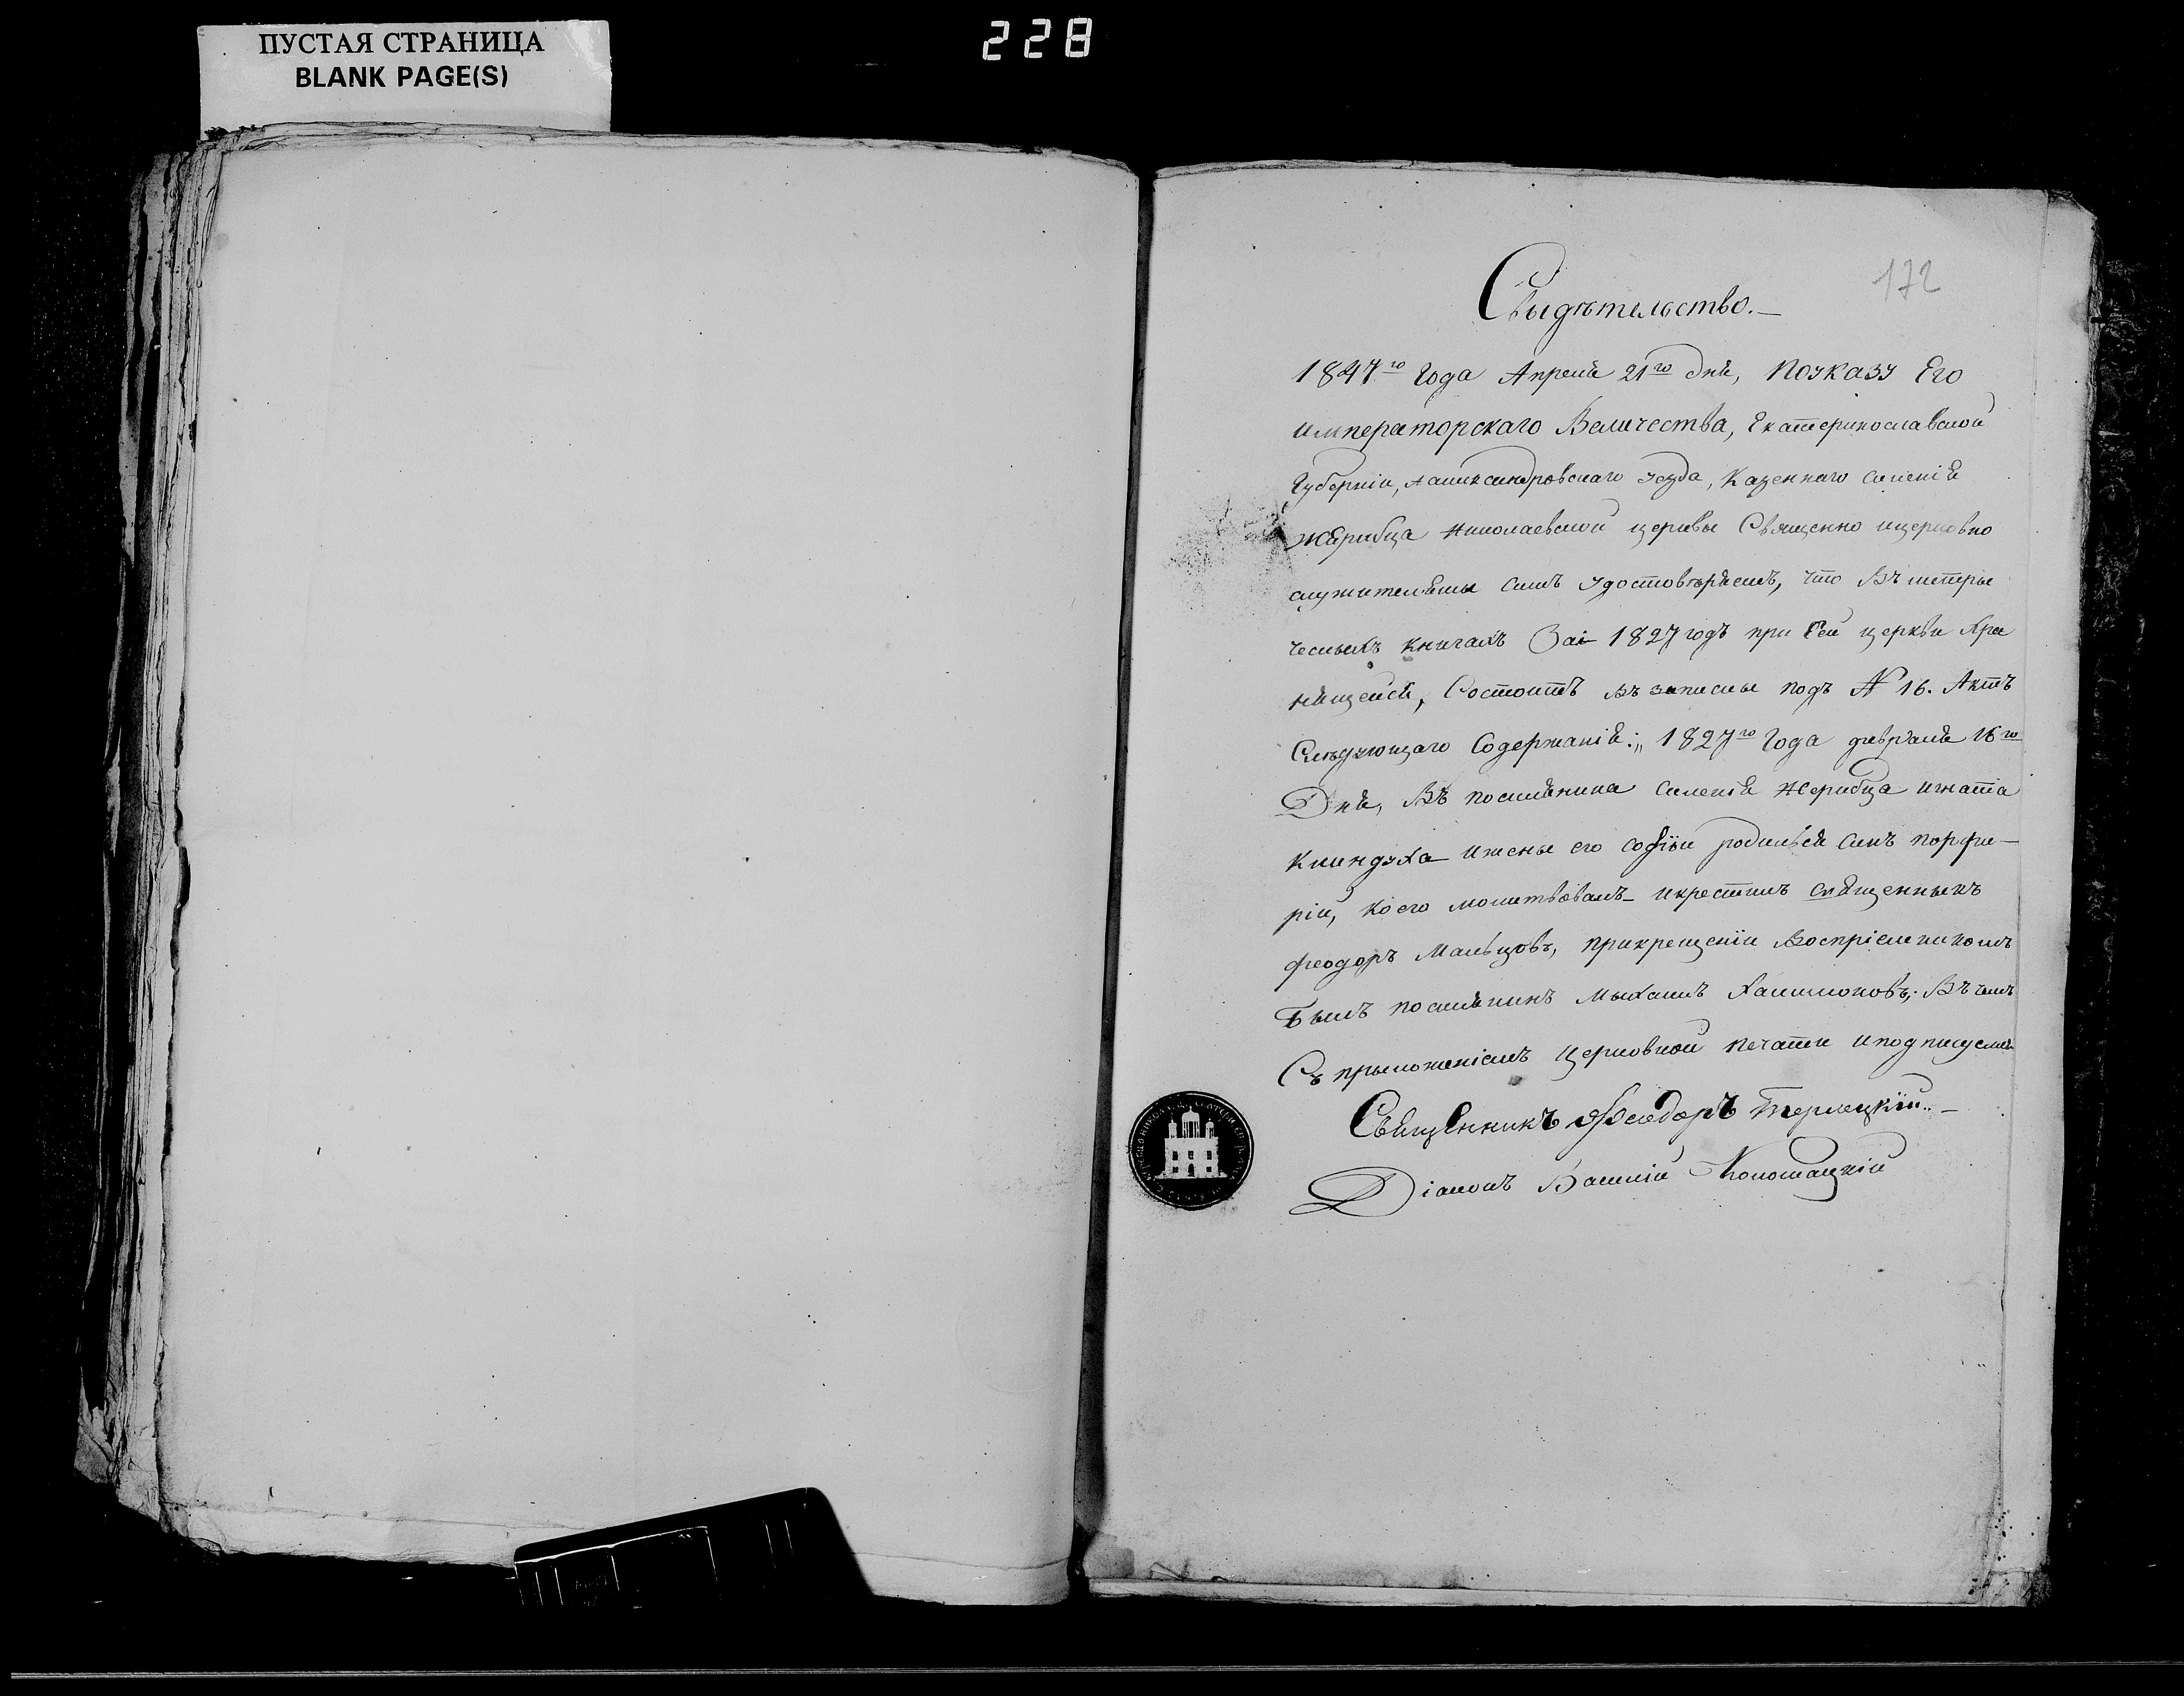 ПУСТАЯ СТРАНИЦА
BLANK PAGE(S)
228
172
Свыдѣтельство.—
1847го Года Апреля 21го дня, Поуказу Его
императорскаго Величества, Екатеринославской
Губерніи, Александровскаго уезда, Казеннаго Селенія
Жеребца Николаевской церквы Священно ицерковно
служителямы симъ удостовѣряемъ, что въ метры
ческыхъ книгахъ За 1827 годъ при Сей церкви Хра
нящейся, Состоитъ въ запысы подъ № 16. Актъ
Слѣдующаго Содержанія: „1827го Года февраля 16го
Дня, Въ поселянина Селенія Жеребца Игната
Клиндуха ижены его софіи родился Синъ порфи—
рій, коего молитвовалъ икрестилъ священныкъ
феодоръ Мальцовъ, прикрещеніи Воспріемникомъ
Былъ поселянинъ Мыхаилъ Халимоновъ; Въ чемъ
Съ прыложеніемъ Церковной печати иподписуемъ
Священникъ Феодоръ Терлецкій.—
Діаконъ Василій Коломацкій